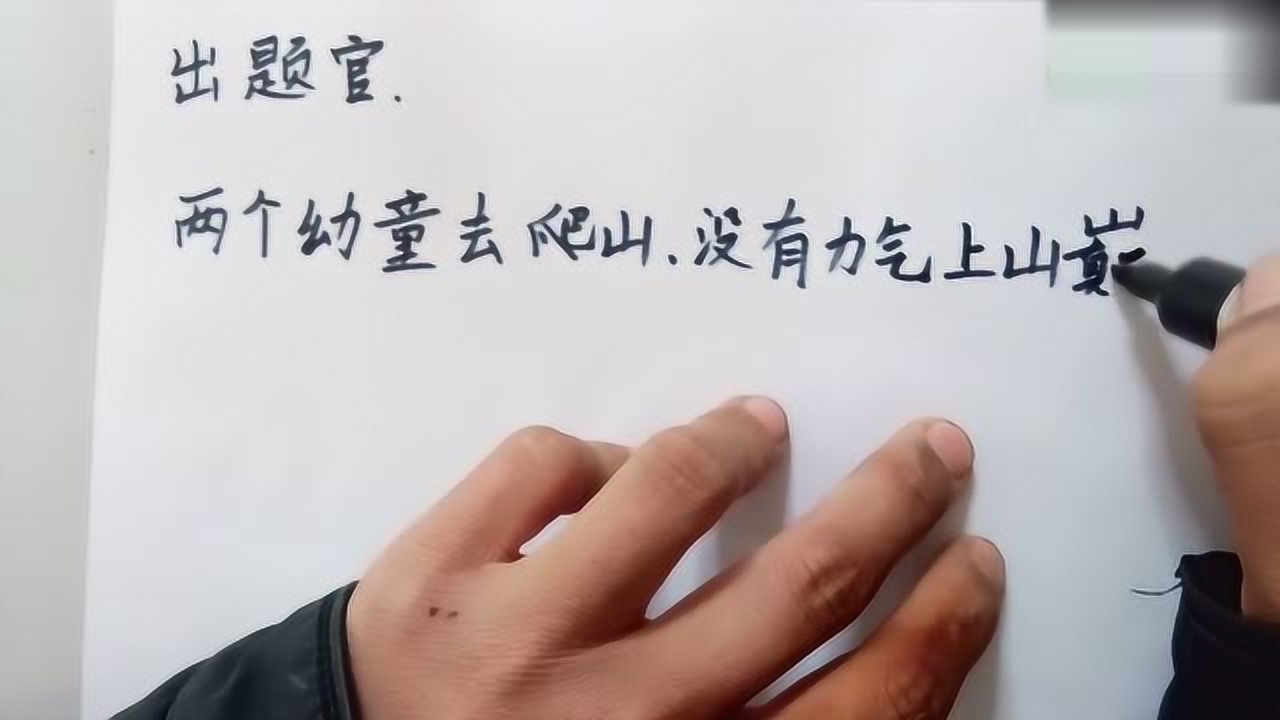 出题官.
两个幼童去爬山.没有力气上山巅